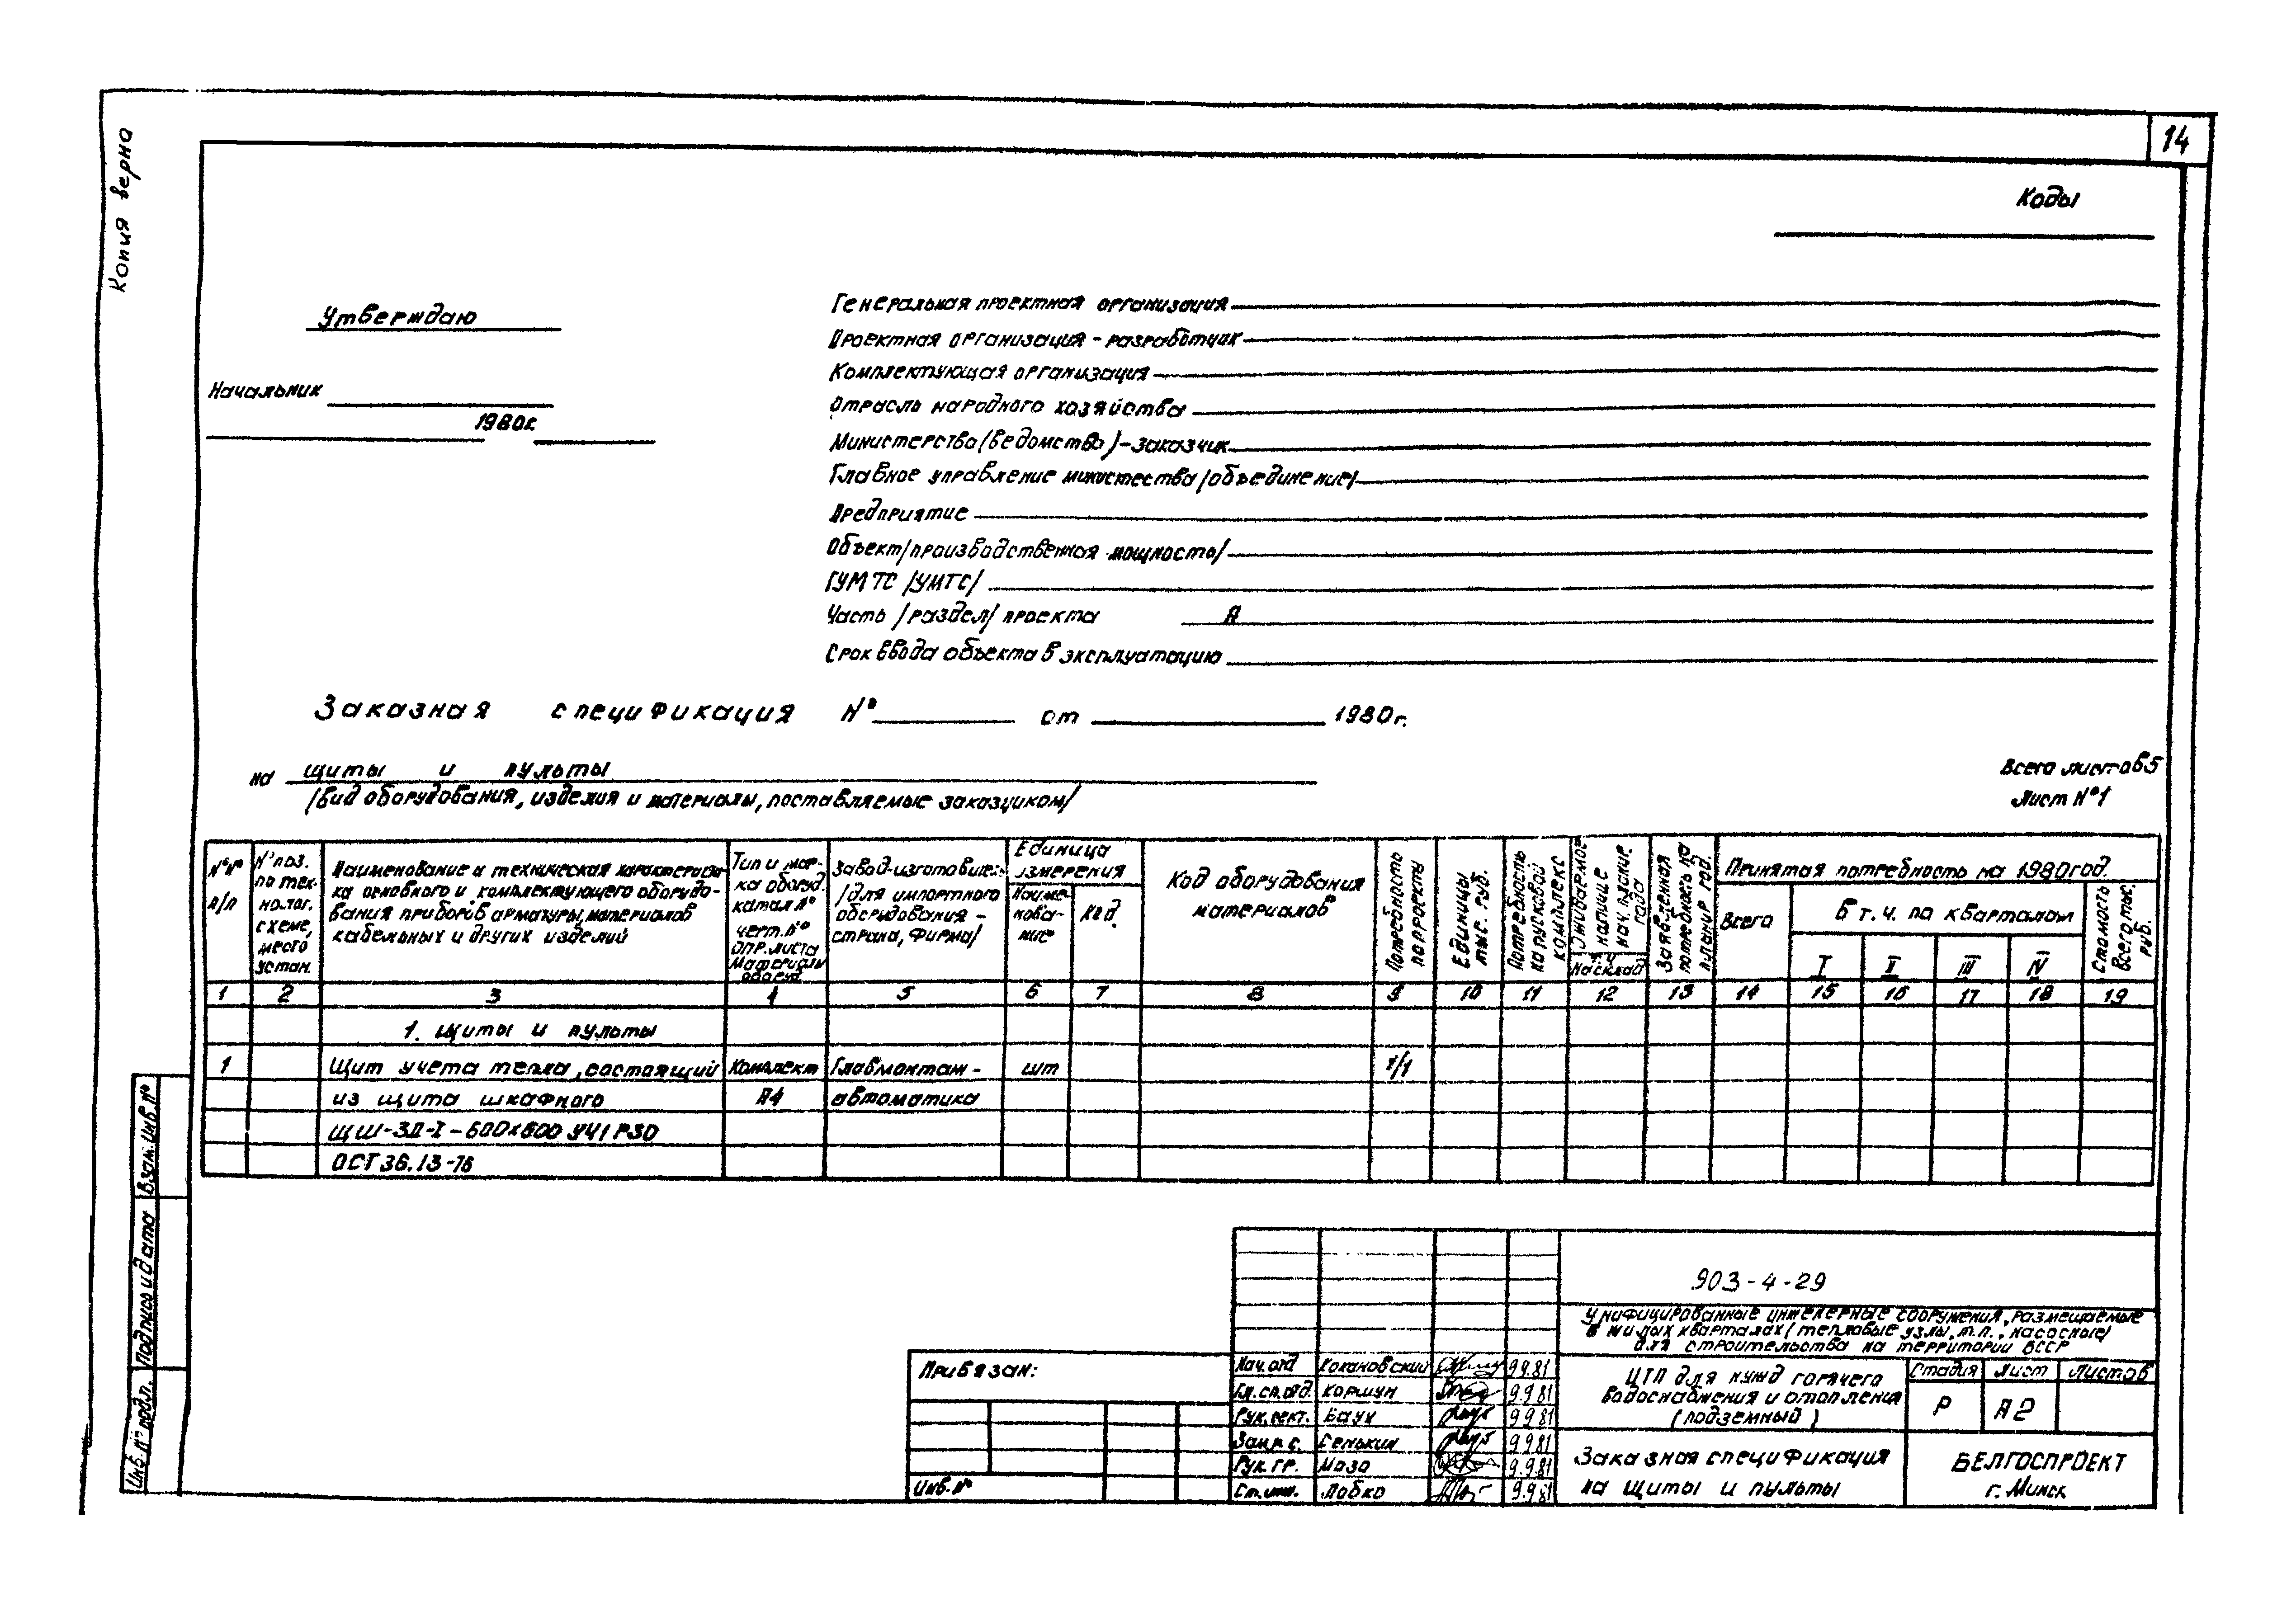 14
Копия верна
Коды
Утверждаю
Начальник
1980г.
Генеральная проектная организация
Проектная организация - разработчик
Комплектующая организация
Отрасль народного хозяйства
Министерства (ведомства) - заказчик
Главное управление министества /объединение/
Предприятие
Объект /производственная мощность/
ГУМТС /УМТС/
Часть /раздел/ проекта А
Срок ввода объекта в эксплуатацию
Заказная спецификация № от 1980г.
на щиты и пульты
/вид оборудования, изделия и материалы, поставляемые заказчиком/
Всего листов 5
Лист №1
№№ п/п
№ поз. по тех-нолог. схеме, место устан.
Наименование и техническая характеристи-
ка основного и комплектующего оборудо-
вания приборов арматуры, материалов
кабельных и других изделий
Тип и мар-
ка оборуд.
катал №
черт. №
опр. листа
Материалы
оборуд.
Завод-изготовитель
/для импортного
оборудования -
страна, фирма/
Единица
измерения
Наиме-
нова-
ние
Код.
Код оборудования
материалов
Потребность
по проекту
Единицы
тыс. руб.
Потребность
на пусковой
комплекс
Ожидаемое
наличие
на нач. план.
года
т.ч.
на склад
Заявленная
потребность на
планир год.
Принятая потребность на 1980 год.
Всего
В т.ч. по кварталам
I II III IV
Стоимость
всего тыс.
руб.
1 2 3 4 5 6 7 8 9 10 11 12 13 14 15 16 17 18 19
1. Щиты и пульты
1 Щит учета тепла, состоящий Комплект Главмонтаж- шт 1/1
из щита шкафного А4 автоматика
ЩШ-ЗД-I-600х600 УЧ1 Р30
ОСТ 36.13-76
Взам. инв. №
Подпись и дата
Инв. № подл.
903-4-29
Унифицированные инженерные сооружения, размещаемые
в жилых кварталах (тепловые узлы, т.п., насосные)
для строительства на территории БССР
Привязан:
Инв. №
Нач. отд Кохановский 9.9.81
Гл. сп. отд. Коршун 9.9.81
Рук. сект. Баух 9.9.81
Сенькин 9.9.81
Рук. гр. Мазо 9.9.81
Ст. инж. Лобко 9.9.81
ЦТП для нужд горячего
водоснабжения и отопления
(подземный)
Стадия Лист Листов
Р А2
Заказная спецификация
на щиты и пульты
БЕЛГОСПРОЕКТ
г. Минск